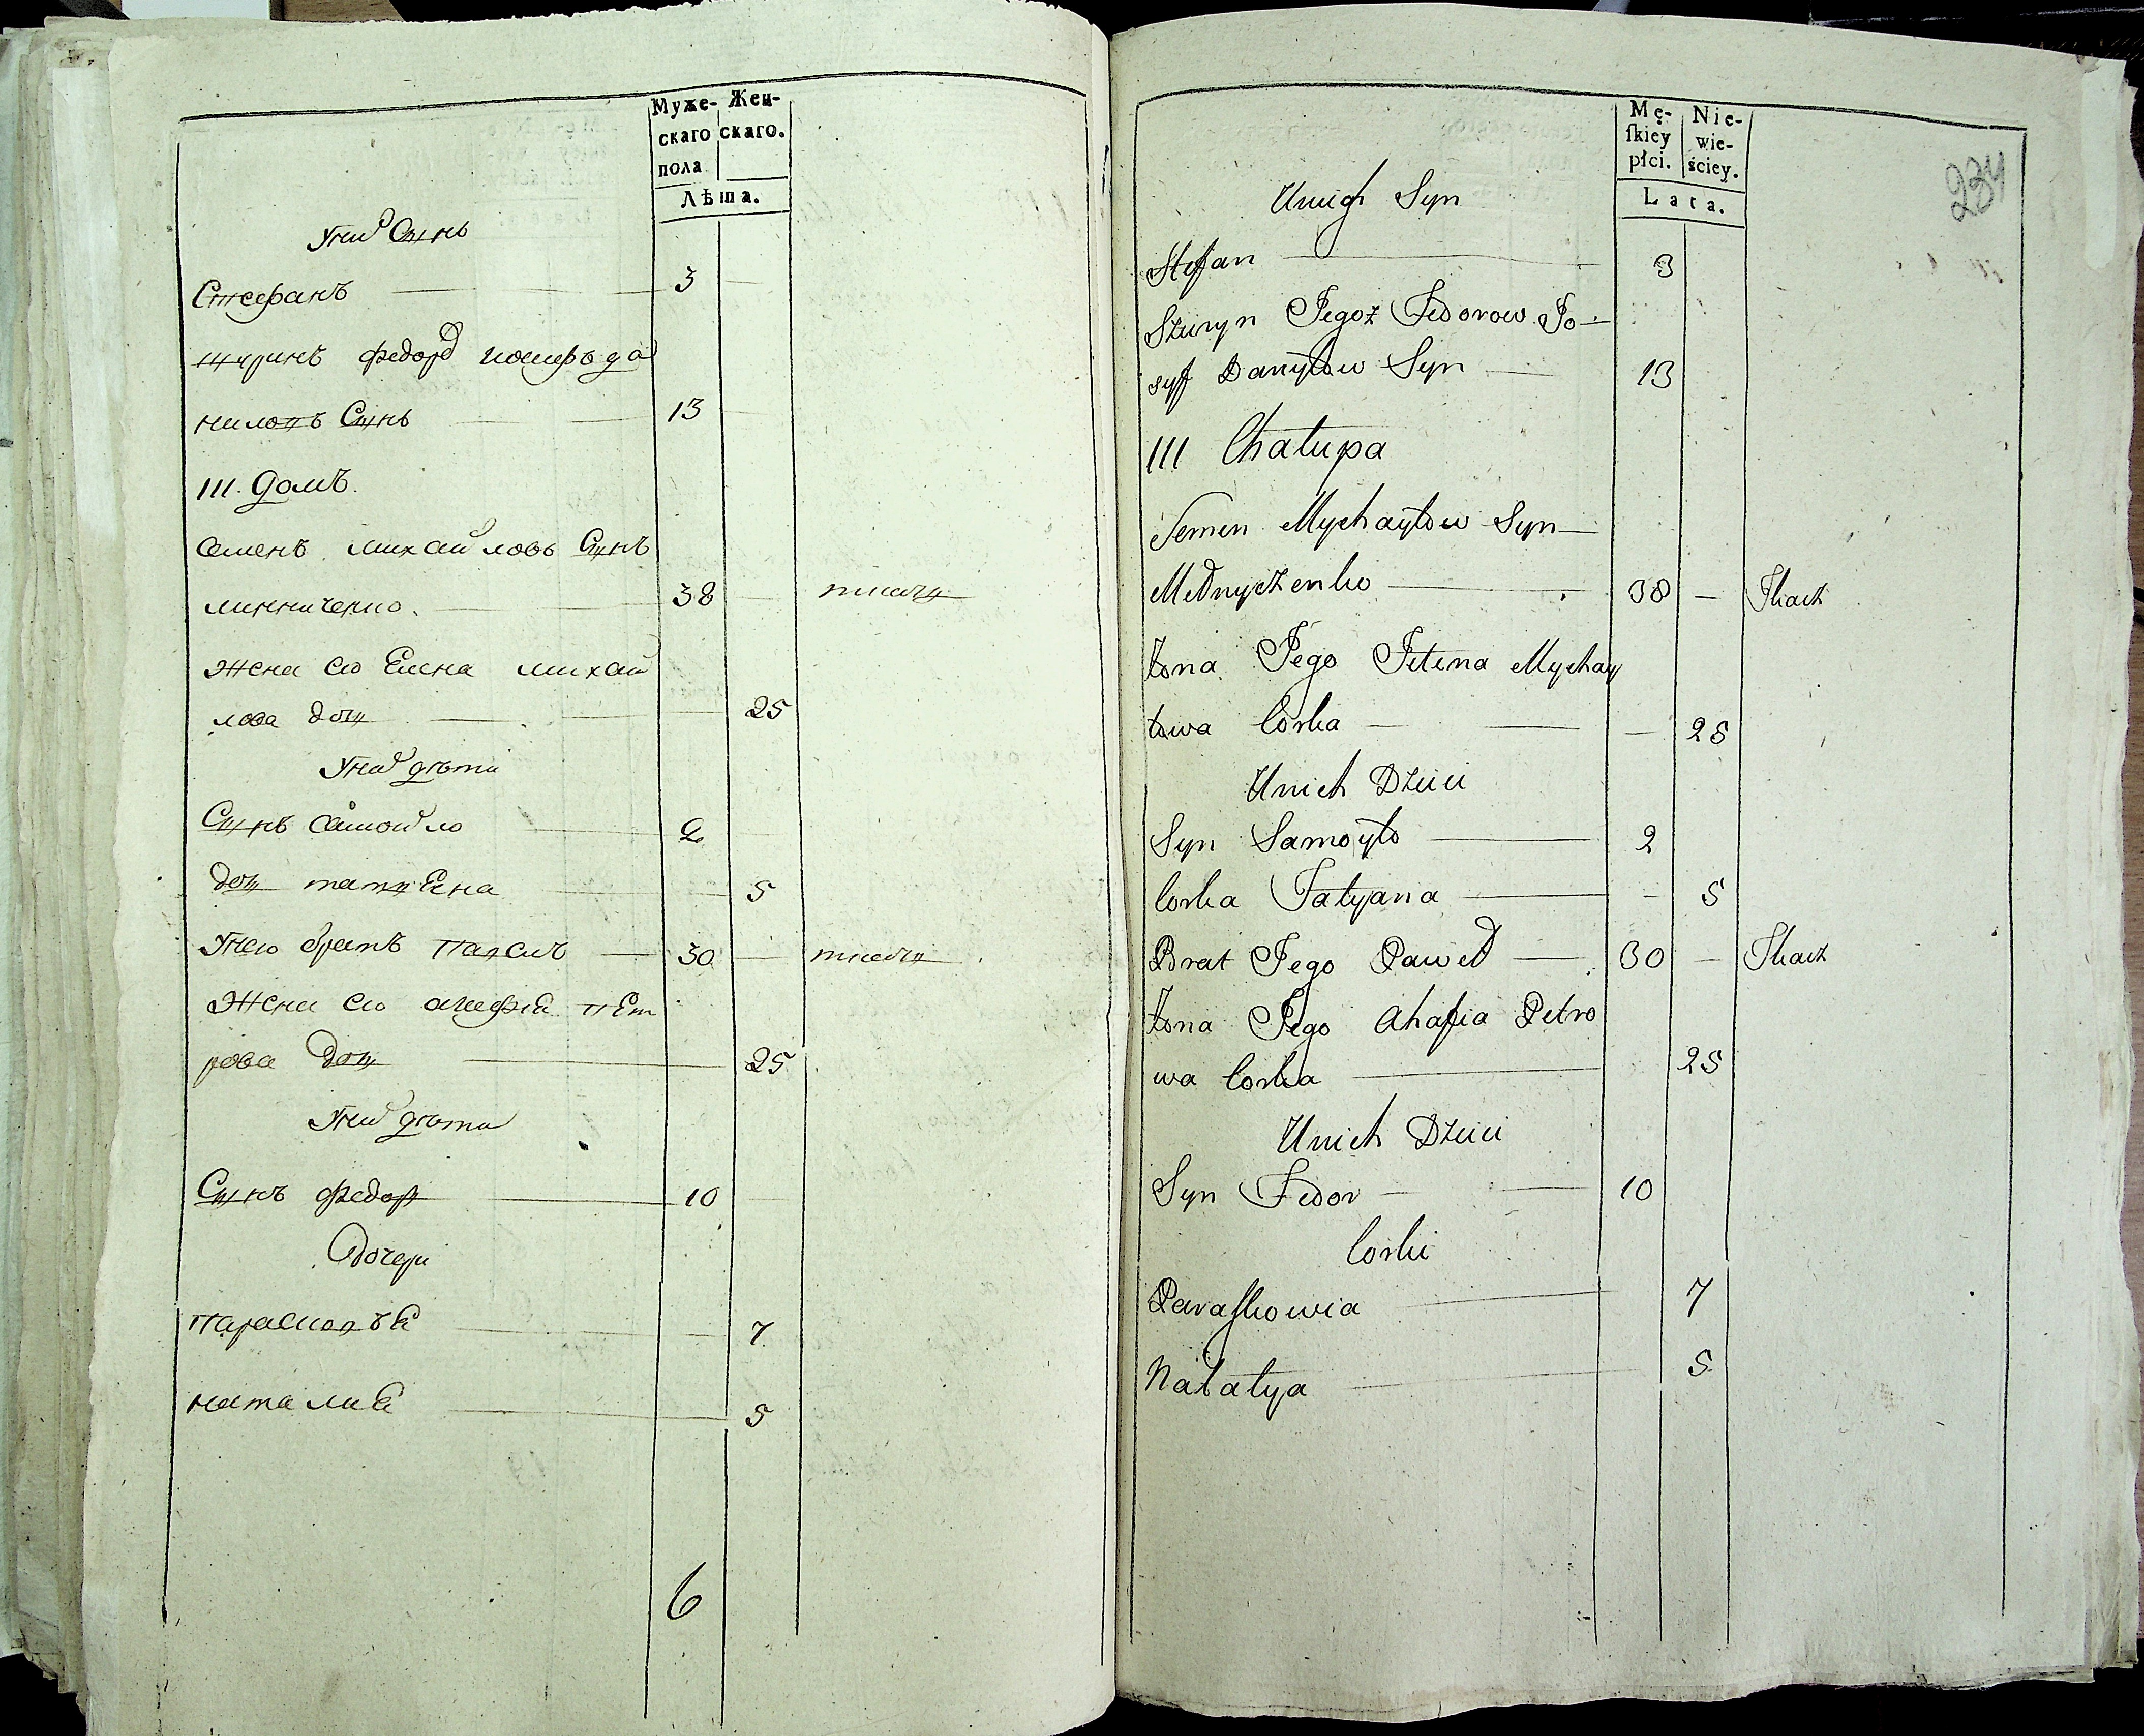 Муже- Жен-
скаго скаго.
пола
Лѣта.
Унихъ Сынъ
Стефанъ 3
Шуринъ Федоръ Иосифъ да
ниловъ Сынъ 13
III. Домъ.
Семенъ Михайловъ Сынъ
38 ткачъ
Жена его Елена Михай
лова дочь 25
Унихъ дѣти
Сынъ Самойло 2
дочь татиена 5
Унего братъ Павелъ 30 ткачъ
Жена его агафіа пет
рова дочь 25
Унихъ дѣти
Сынъ Федоръ 10
Дочери
Парасковѣа 7
Наталиа 5
6
Mę- Nie-
ſkiey wie-
płci. ściey.
Lata.
234
Unich Syn
Stefan 3
Szuryn Jegoż Fedorow Jo-
syf Danyłow Syn 13
III Chałupa
Semen Mychayłow Syn
Mednyczenko 38 – Tkacz
Żona Jego Jelena Mychay
łowa Corka – 25
Unich Dzieci
Syn Samoyło 2
Corka Tatyana - 5
Brat Jego Paweł 30 – Tkacz
Żona Jego Ahafia Petro
wa Corka 25
Unich Dzieci
Syn Fedor 10
Corki
Paraſkowia 7
Natalya 5